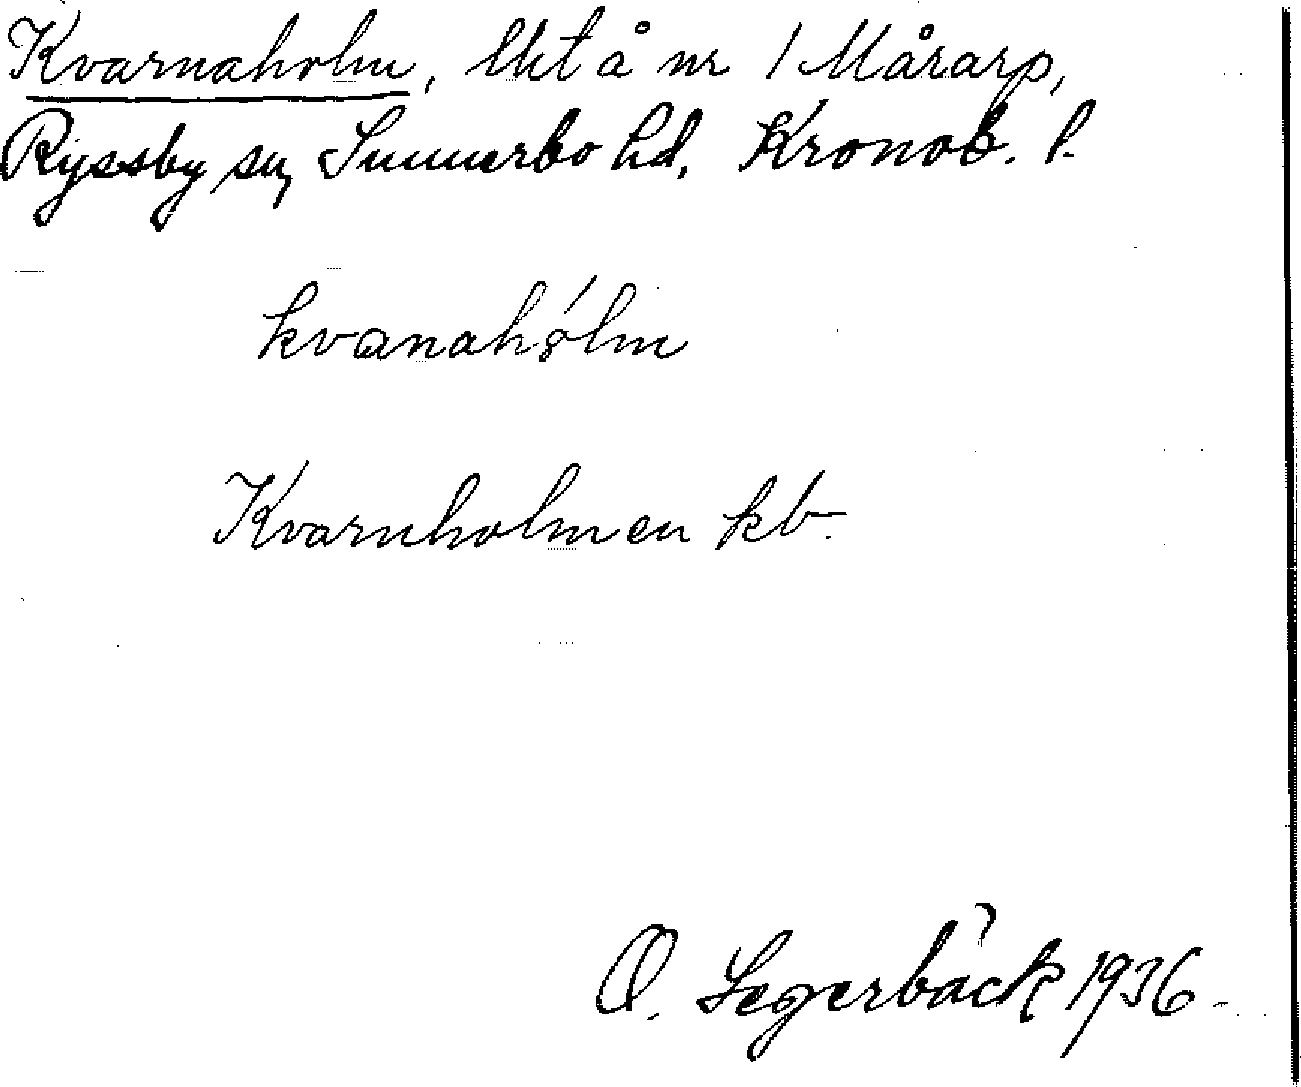 Kvarnaholm, lht å nr 1 Mårarp,
Ryssby sn, Sunnerbo hd. Kronob. l.
kvanahólm
Kvarnholmen kb.
O. Segerbäck 1936.